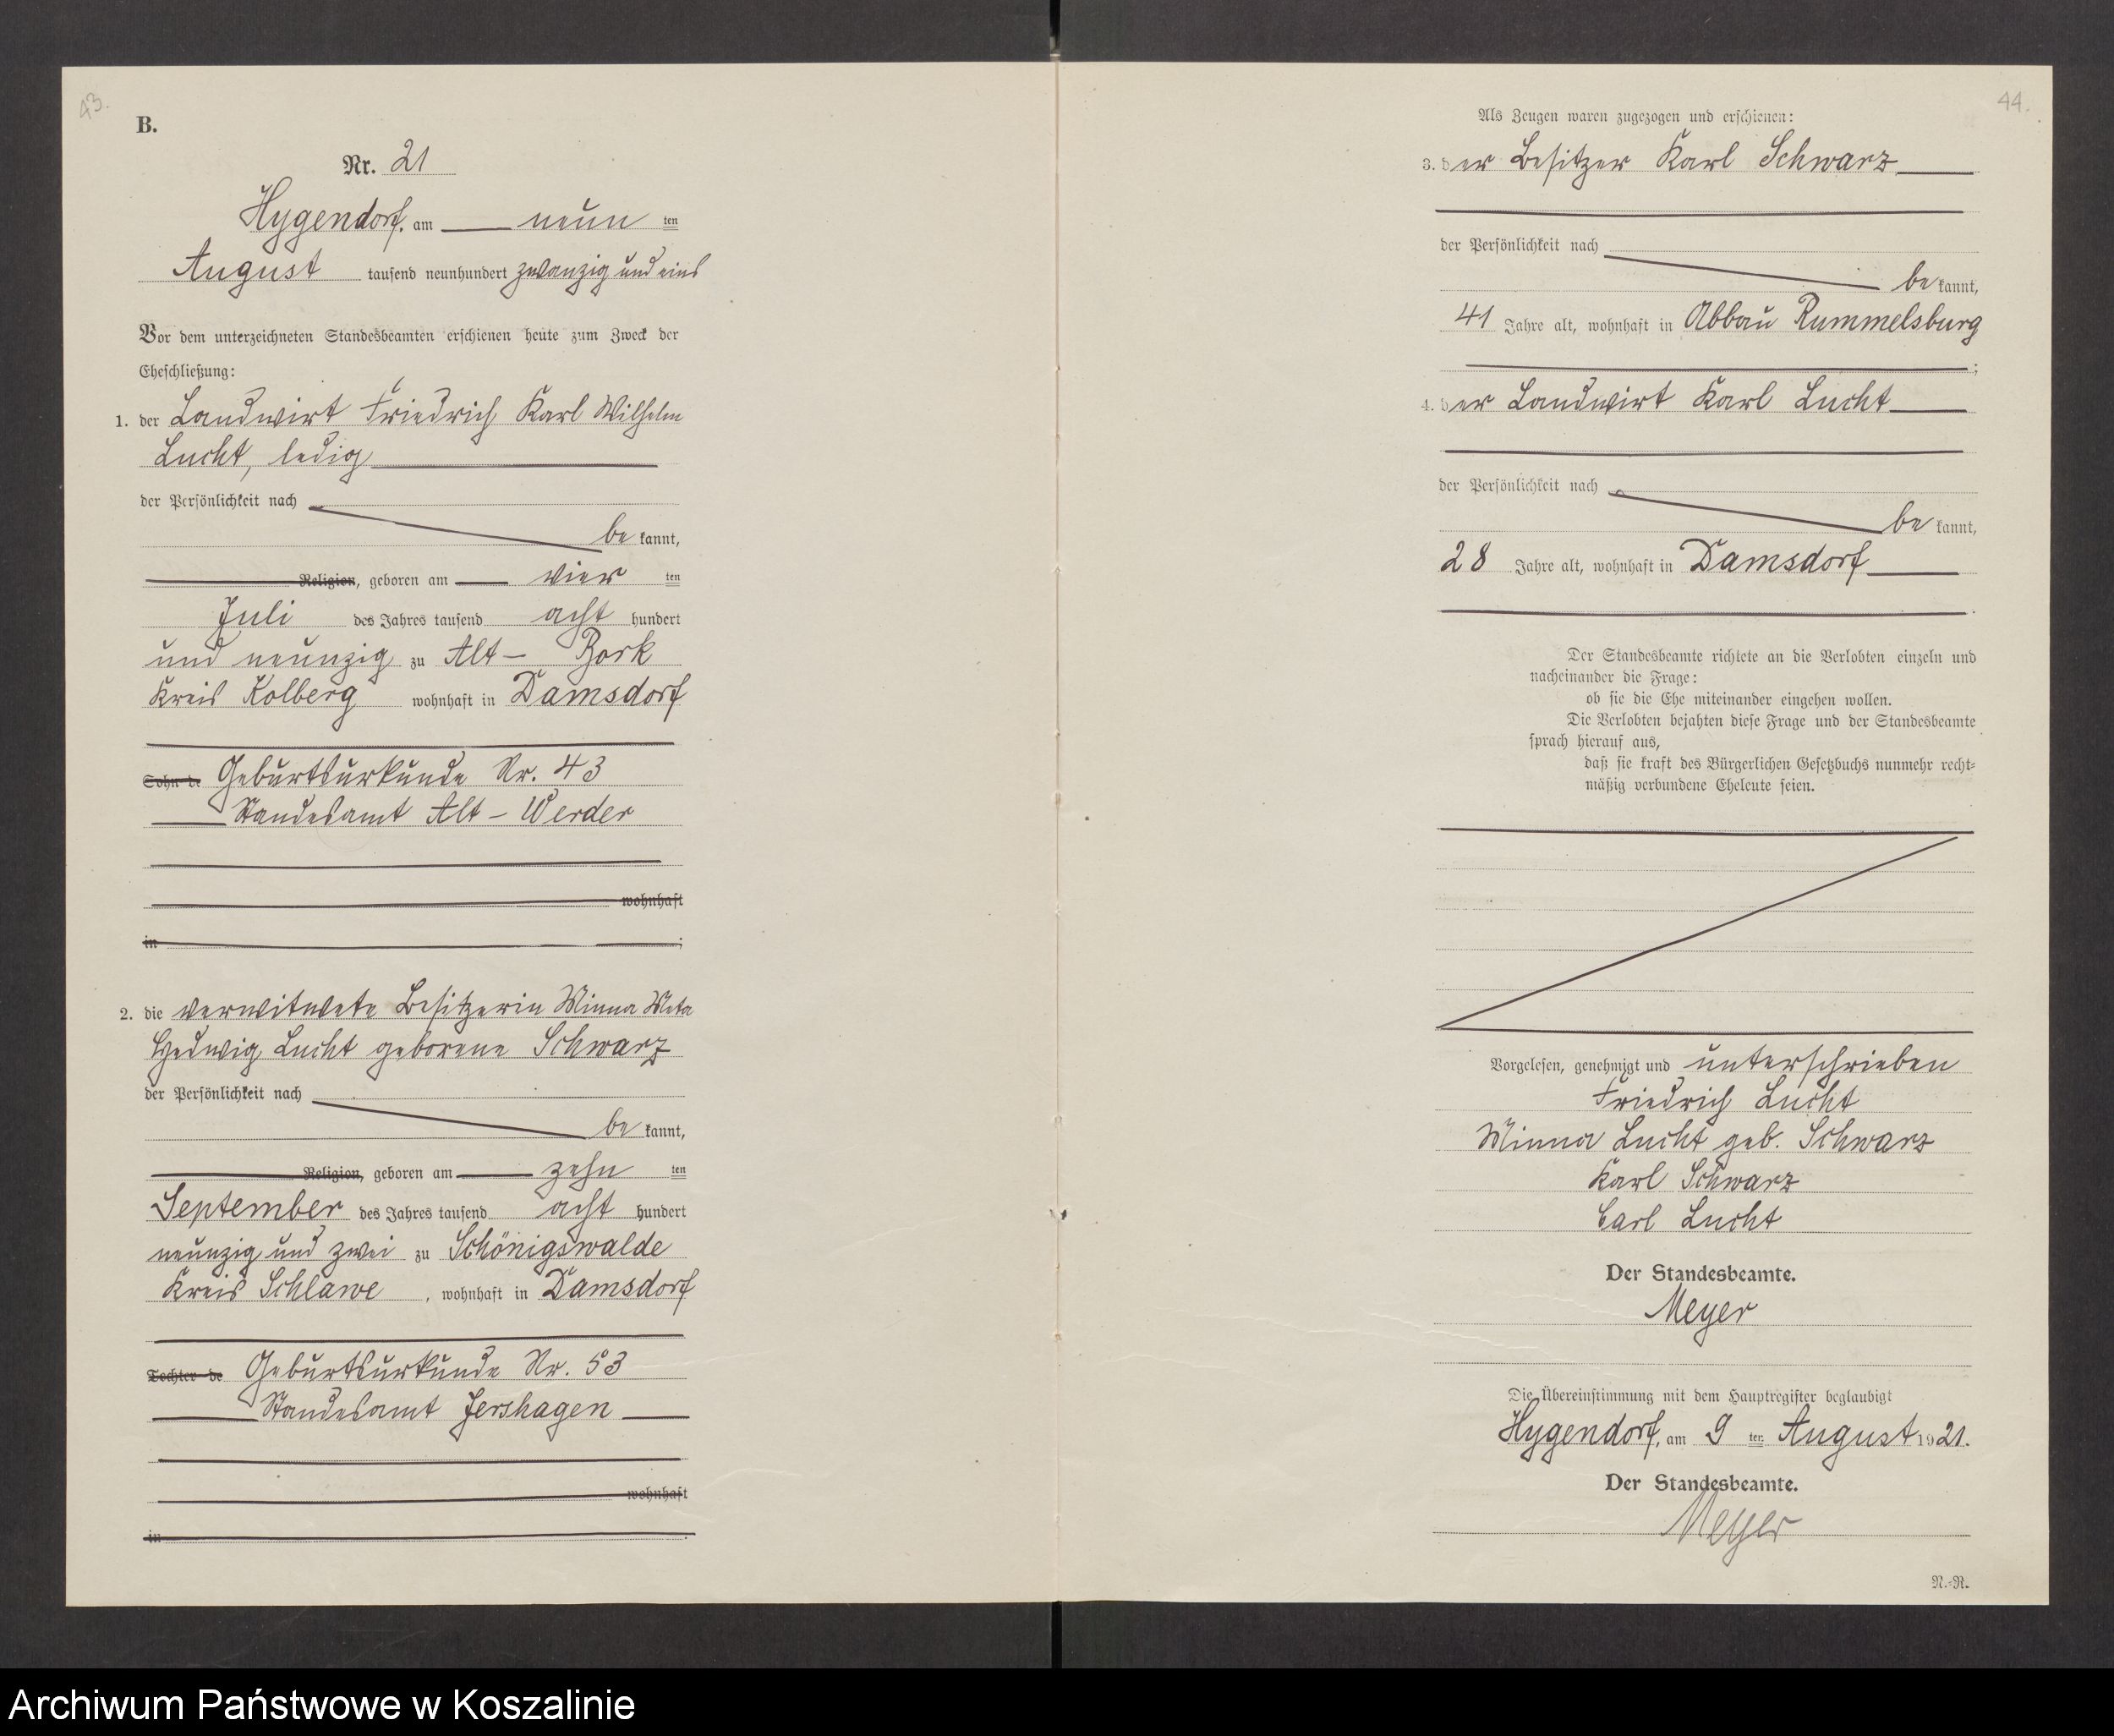 43.
B.
Nr. 21
Hygendorf, am neun ten
August tausend neunhundert zwanzig und eins
Vor dem unterzeichneten Standesbeamten erschienen heute zum Zweck der
Eheschließung:
1. der Landwirt Friedrich Karl Wilhelm
Lucht, ledig
der Persönlichkeit nach
be kannt,
Religion, geboren am vier ten
Juli des Jahres tausend acht hundert
und neunzig zu Alt- Bork
Kreis Kolberg wohnhaft in Damsdorf
Sohn de Geburtsurkunde Nr. 43
Standesamt Alt-Werder
wohnhaft
in ;
2. die verwitwete Besitzerin Minna Meta
Hedwig Lucht geborene Schwarz
der Persönlichkeit nach
be kannt,
Religion, geboren am zehn ten
September des Jahres tausend acht hundert
neunzig und zwei zu Schönigswalde
Kreis Schlawe, wohnhaft in Damsdorf
Tochter de Geburtsurkunde Nr. 53
Standesamt Jershagen
wohnhaft
in .
44.
Als Zeugen waren zugezogen und erschienen:
3. der Besitzer Karl Schwarz
der Persönlichkeit nach
be kannt,
41 Jahre alt, wohnhaft in Abbau Rummelsburg
;
4. der Landwirt Karl Lucht
der Persönlichkeit nach
be kannt,
28 Jahre alt, wohnhaft in Damsdorf
.
Der Standesbeamte richtete an die Verlobten einzeln und
nacheinander die Frage:
ob sie die Ehe miteinander eingehen wollen.
Die Verlobten bejahten diese Frage und der Standesbeamte
sprach hierauf aus,
daß sie kraft des Bürgerlichen Gesetzbuchs nunmehr recht-
mäßig verbundene Eheleute seien.
Vorgelesen, genehmigt und unterschrieben
Friedrich Lucht
Minna Lucht geb. Schwarz
Karl Schwarz
Carl Lucht
Der Standesbeamte.
Meyer
Die Übereinstimmung mit dem Hauptregister beglaubigt
Hygendorf, am 9 ten August 1921.
Der Standesbeamte.
Meyer
N.-R.
Archiwum Państwowe w Koszalinie